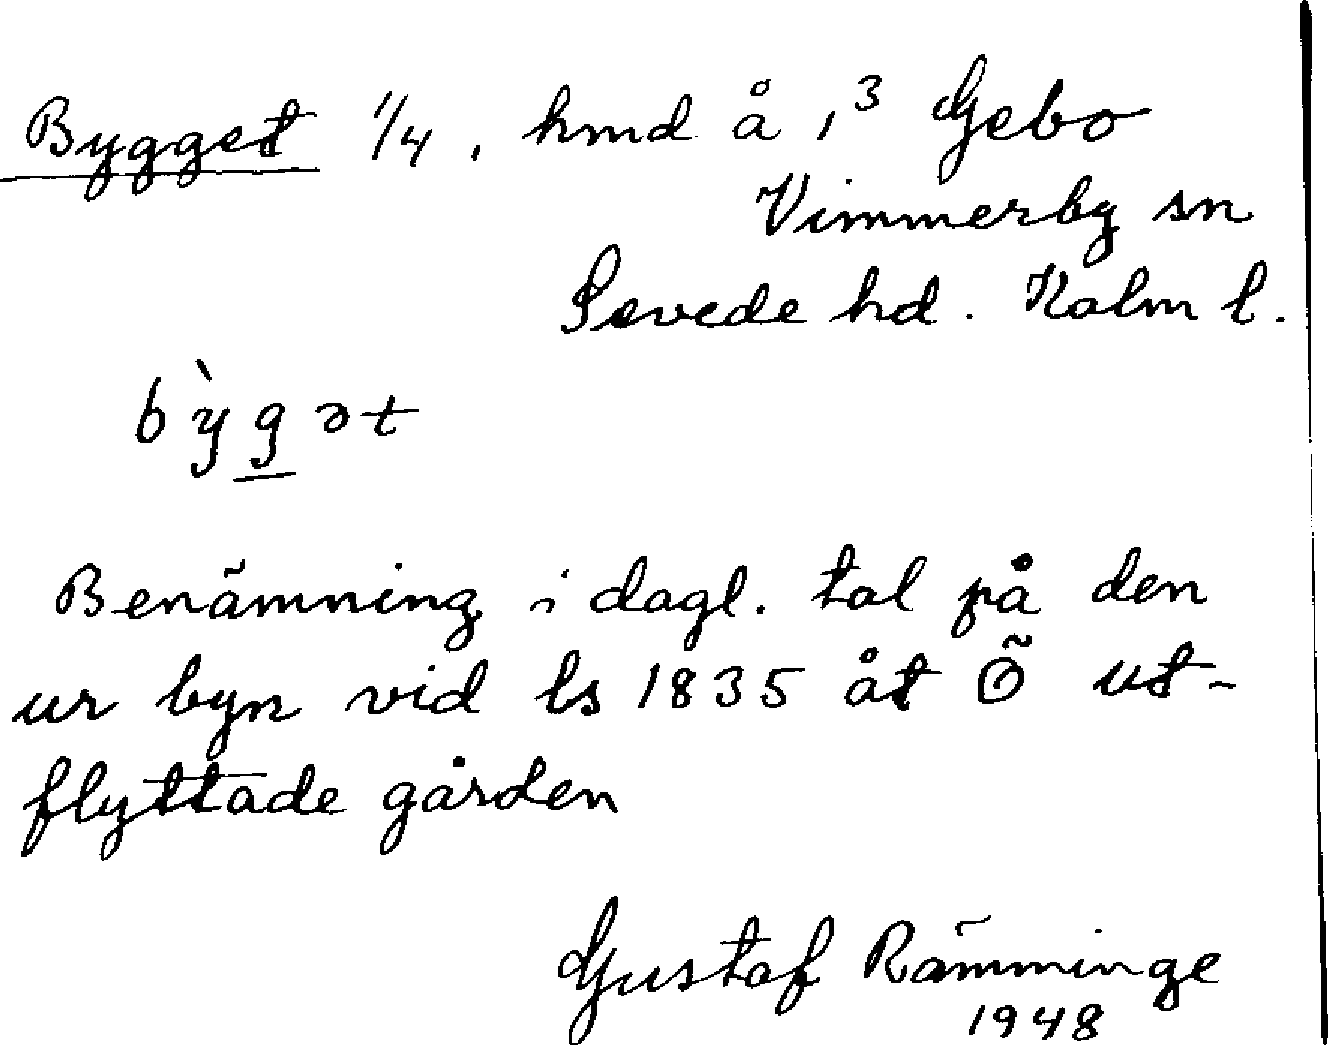 Bygget 1/4, hmd å 1³ Gebo
Vimmerby sn
Sevede hd. Kalm l.
bỳgət
Benämning i dagl. tal på den
ur byn vid ls 1835 åt Ö ut-
flyttade gården
Gustaf Rämminge
1948